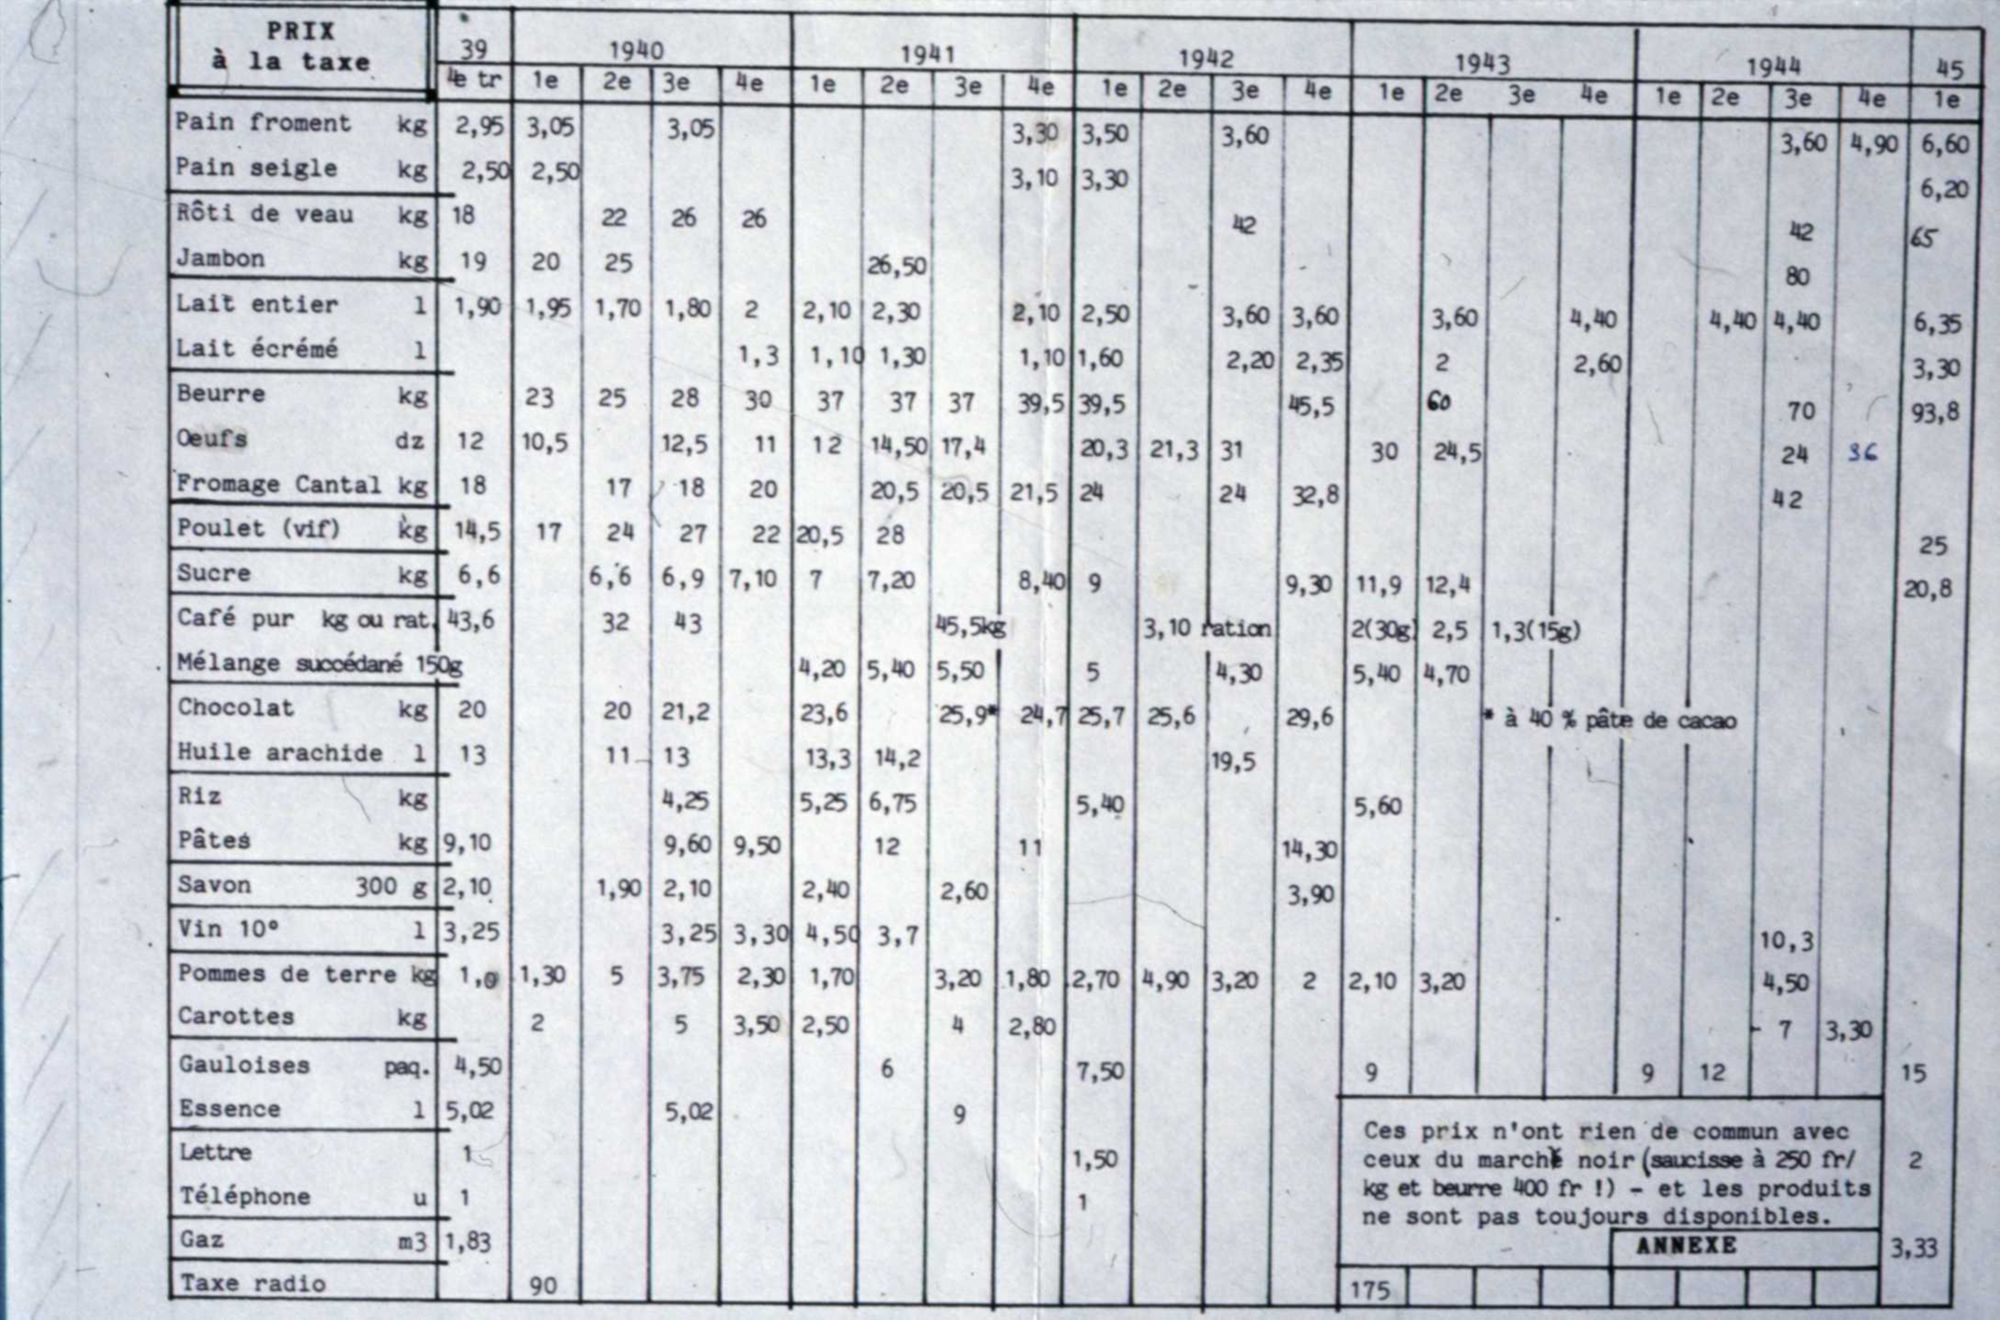 PRIX
à la taxe
39 1940 1941 1942 1943 1944 45
4e tr 1e 2e 3e 4e 1e 2e 3e 4e 1e 2e 3e 4e 1e 2e 3e 4e 1e 2e 3e 4e 1e
Pain froment kg 2,95 3,05 3,05 3,30 3,50 3,60 3,60 4,90 6,60
Pain seigle kg 2,50 2,50 3,10 3,30 6,20
Rôti de veau kg 18 22 26 26 42 42 65
Jambon kg 19 20 25 26,50 80
Lait entier l 1,90 1,95 1,70 1,80 2 2,10 2,30 2,10 2,50 3,60 3,60 3,60 4,40 4,40 4,40 6,35
Lait écrémé l 1,3 1,10 1,30 1,10 1,60 2,20 2,35 2 2,60 3,30
Beurre kg 23 25 28 30 37 37 37 39,5 39,5 45,5 60 70 93,8
Oeufs dz 12 10,5 12,5 11 12 14,50 17,4 20,3 21,3 31 30 24,5 24 36
Fromage Cantal kg 18 17 18 20 20,5 20,5 21,5 24 24 32,8 42
Poulet (vif) kg 14,5 17 24 27 22 20,5 28 25
Sucre kg 6,6 6,6 6,9 7,10 7 7,20 8,40 9 9,30 11,9 12,4 20,8
Café pur kg ou rat. 43,6 32 43 45,5kg 3,10 ration 2(30g) 2,5 1,3(15g)
Mélange succédané 150g 4,20 5,40 5,50 5 4,30 5,40 4,70
Chocolat kg 20 20 21,2 23,6 25,9* 24,7 25,7 25,6 29,6 * à 40 % pâte de cacao
Huile arachide l 13 11 13 13,3 14,2 19,5
Riz kg 4,25 5,25 6,75 5,40 5,60
Pâtes kg 9,10 9,60 9,50 12 11 14,30
Savon 300 g 2,10 1,90 2,10 2,40 2,60 3,90
Vin 10° l 3,25 3,25 3,30 4,50 3,7 10,3
Pommes de terre kg 1,0 1,30 5 3,75 2,30 1,70 3,20 1,80 2,70 4,90 3,20 2 2,10 3,20 4,50
Carottes kg 2 5 3,50 2,50 4 2,80 7 3,30
Gauloises paq. 4,50 6 7,50 9 9 12 15
Essence l 5,02 5,02 9
Lettre 1 1,50 2
Téléphone u 1 1
Gaz m3 1,83 3,33
Taxe radio 90 175
Ces prix n'ont rien de commun avec
ceux du marché noir (saucisse à 250 fr/
kg et beurre 400 fr !) - et les produits
ne sont pas toujours disponibles.
ANNEXE